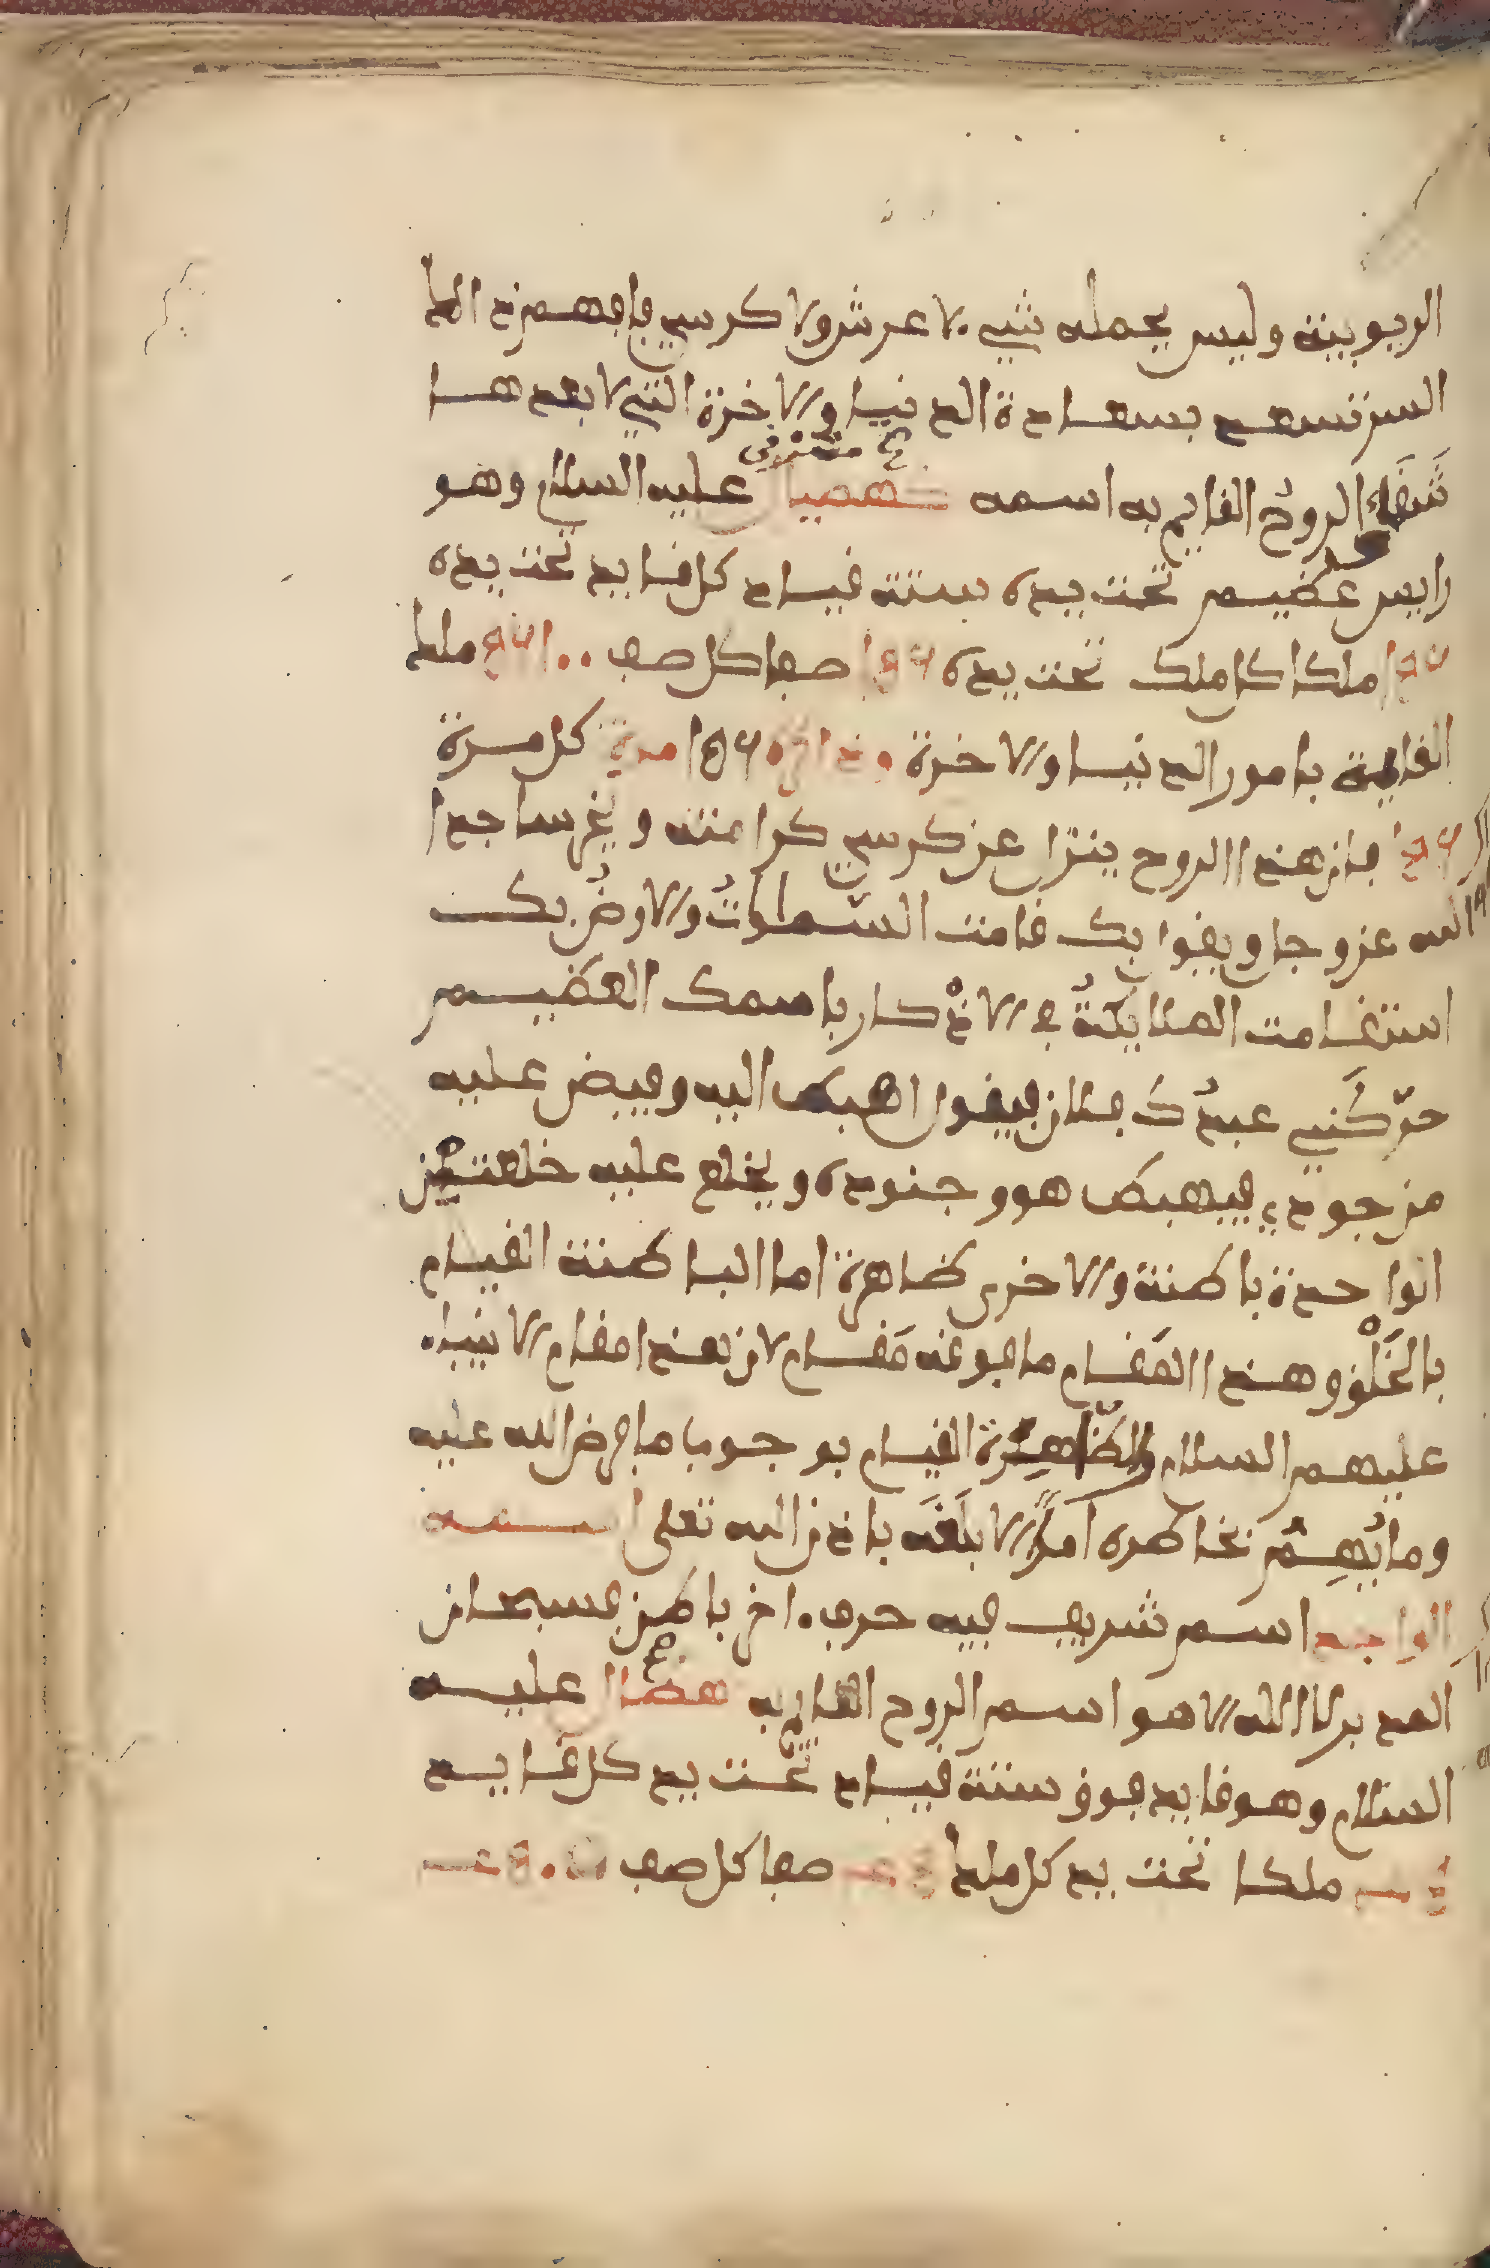 الربوبية وليس يحمله شيء لا عرش ولا كرسي فافهم ذا
السر تسعد بسعادة الدنيا والاخرة التي لا بعدها
شقاء الروح القايم به اسمه كهصيال عليه السلام وهو
رايس عظيم تحت يده ستة قياد كل قايد تحت يده
ملكا كل ملك تحت يده صفا كل صف
القايمة بامور الدنيا والاخرة مرة كل مرة
فان هذا الروح ينزل عن كرسي كرامته ويخر ساجدا
لله عز وجل ويقول بك قامت السماوات والارض بك
استقامت الملايكة في الاذكار باسمك العظيم
حركني عبدك فلان فيقول اهبط اليه وفيض عليه
من جودي فيهبط هو وجنوده ويخلع عليه خلعتين
الواحدة باطنة والاخرى ظاهرة اما الباطنة القيام
بالخلق وهذا المقام ما فوقه مقام لان هذا مقام الانبياء
عليهم السلام والظاهرة القيام بوجوب ما فرض الله عليه
وما يهم بخاطره امرا الا بلغه باذن الله تعلى اسمه
الواجد اسم شريف فيه حرف اخ باطن فسبحان
المدبر لا اله الا هو اسم الروح القايم به هضال عليه
السلام وهو قايد فوق ستة قياد تحت يد كل قايد
ملكا تحت يد كل ملك صفا كل صف